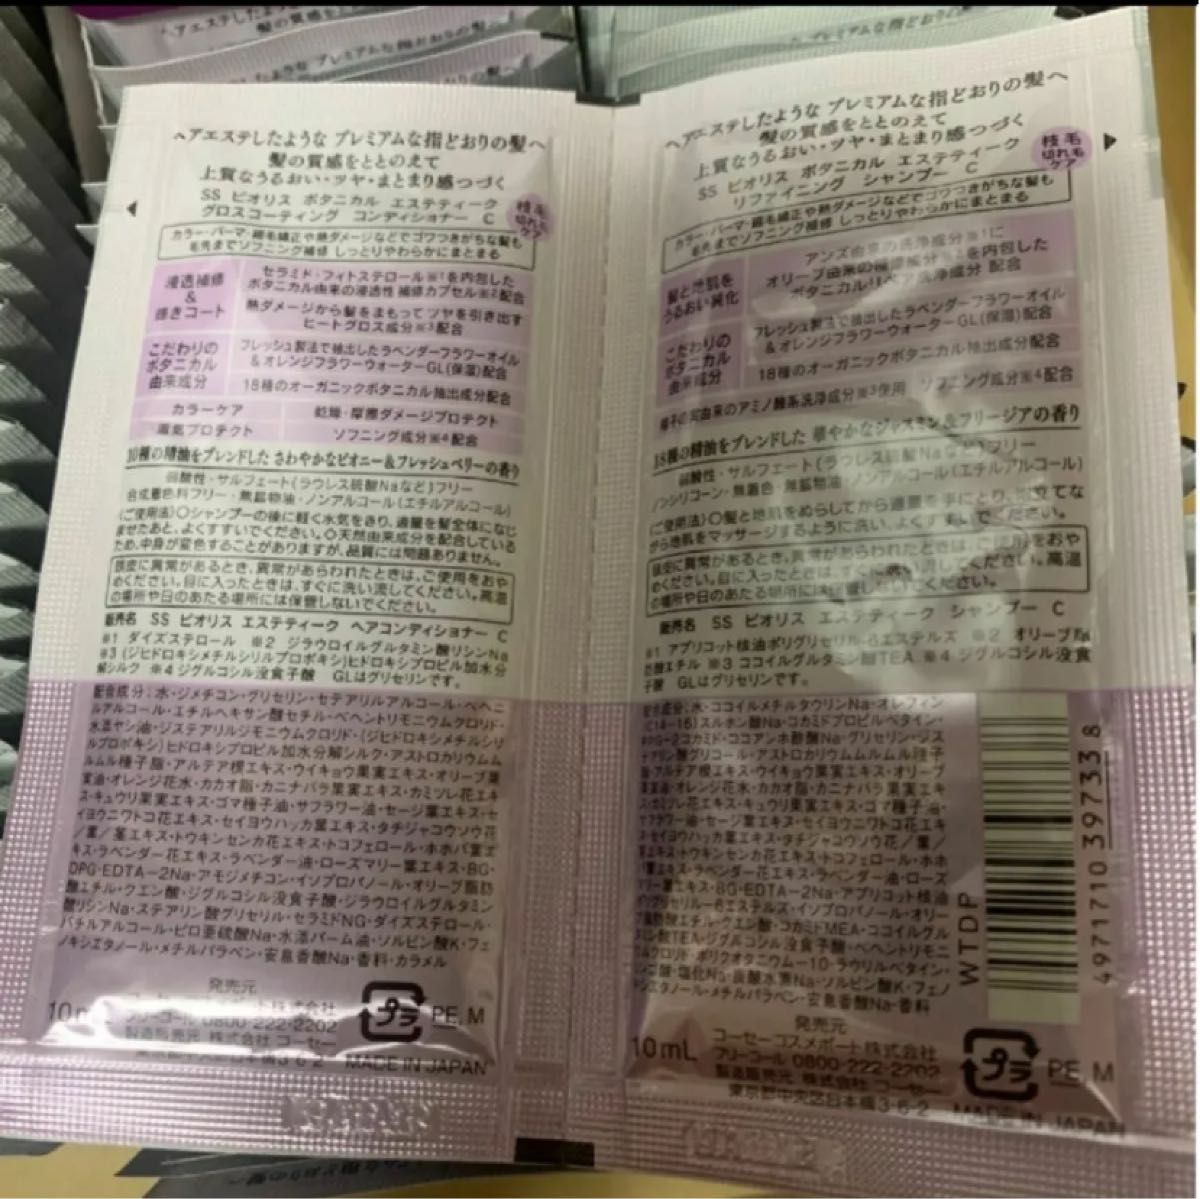 ヘアエステしたような プレミアムな指どおりの髪へ
髪の質感をととのえて
上質なうるおい・ツヤ・まとまり感つづく
SS ビオリス ボタニカル エステティーク
グロスコーティング コンディショナー C
枝毛
切れ毛
ケア
カラー・パーマ・縮毛矯正や熱ダメージなどでゴワつきがちな髪も
毛先までソフニング補修 しっとりやわらかにまとまる
浸透補修
&
輝きコート
セラミド・フィトステロール※1を内包した
ボタニカル由来の浸透性補修カプセル※2配合
熱ダメージから髪をまもってツヤを引き出す
ヒートグロス成分※3配合
こだわりの
ボタニカル
由来成分
フレッシュ製法で抽出したラベンダーフラワーオイル
&オレンジフラワーウォーターGL(保湿)配合
18種のオーガニックボタニカル抽出成分配合
カラーケア
乾燥・摩擦ダメージプロテクト
電気プロテクト
ソフニング成分※4配合
10種の精油をブレンドした さわやかなピオニー&フレッシュベリーの香り
弱酸性・サルフェート(ラウレス硫酸Naなど)フリー
合成着色料フリー・無鉱物油・ノンアルコール(エチルアルコール)
〈ご使用法〉〇シャンプーの後に軽く水気をきり、適量を髪全体になじ
ませたあと、よくすすいでください。◇天然由来成分を配合している
ため、中身が変色することがありますが、品質には問題ありません。
頭皮に異常があるとき、異常があらわれたときは、ご使用をおや
めください。目に入ったときは、すぐに洗い流してください。高温
の場所や日のあたる場所には保管しないでください。
販売名 SS ビオリス エステティーク ヘアコンディショナー C
※1 ダイズステロール ※2 ジラウロイルグルタミン酸リシンNa
※3 (ジヒドロキシメチルシリルプロポキシ)ヒドロキシプロピル加水分
解シルク ※4 ジグルコシル没食子酸 GLはグリセリンです。
配合成分:水・ジメチコン・グリセリン・セテアリルアルコール・ベヘニ
ルアルコール・エチルヘキサン酸セチル・ベヘントリモニウムクロリド・
水添ヤシ油・ジステアリルジモニウムクロリド・(ジヒドロキシメチルシリ
ルプロポキシ)ヒドロキシプロピル加水分解シルク・アストロカリウムム
ルムル種子脂・アルテア根エキス・ウイキョウ果実エキス・オリーブ果
実油・オレンジ花水・カカオ脂・カニナバラ果実エキス・カミツレ花エキ
ス・キュウリ果実エキス・ゴマ種子油・サフラワー油・セージ葉エキス・セ
イヨウニワトコ花エキス・セイヨウハッカ葉エキス・タチジャコウソウ花
/葉/茎エキス・トウキンセンカ花エキス・トコフェロール・ホホバ葉エ
キス・ラベンダー花エキス・ラベンダー油・ローズマリー葉エキス・BG・
DPG・EDTA-2Na・アモジメチコン・イソプロパノール・オリーブ脂肪
酸エチル・クエン酸・ジグルコシル没食子酸・ジラウロイルグルタミン
酸リシンNa・ステアリン酸グリセリル・セラミドNG・ダイズステロール・
バチルアルコール・ピロ亜硫酸Na・水添パーム油・ソルビン酸K・フェ
ノキシエタノール・メチルパラベン・安息香酸Na・香料・カラメル
発売元
コーセーコスメポート株式会社
フリーコール 0800-222-2202
製造販売元 株式会社 コーセー
東京都中央区日本橋3-6-2
10m
プラ
PE, M
MADE IN JAPAN
ヘアエステしたような プレミアムな指どおりの髪へ
髪の質感をととのえて
上質なうるおい・ツヤ・まとまり感つづく
SS ビオリス ボタニカル エステティーク
リファイニング シャンプー C
枝毛
切れ毛
ケア
カラー・パーマ・縮毛矯正や熱ダメージなどでゴワつきがちな髪も
毛先までソフニング補修 しっとりやわらかにまとまる
髪と地肌を
うるおい純化
アンズ由来の洗浄成分※1に
オリーブ由来の補修成分※2を内包した
ボタニカルリペア洗浄成分 配合
こだわりの
ボタニカル
由来成分
フレッシュ製法で抽出したラベンダーフラワーオイル
&オレンジフラワーウォーターGL(保湿)配合
18種のオーガニックボタニカル抽出成分配合
椰子の実由来のアミノ酸系洗浄成分※3使用 ソフニング成分※4配合
18種の精油をブレンドした 華やかなジャスミン&フリージアの香り
弱酸性・サルフェート(ラウレス硫酸Naなど)フリー
ノンシリコーン・無着色・無鉱物油・ノンアルコール(エチルアルコール)
〈ご使用法〉〇髪と地肌をぬらしてから適量を手にとり、泡立てな
がら地肌をマッサージするように洗い、よくすすいでください。
頭皮に異常があるとき、異常があらわれたときは、ご使用をおや
めください。目に入ったときは、すぐに洗い流してください。高温
の場所や日のあたる場所には保管しないでください。
販売名 SS ビオリス エステティーク シャンプー C
※1 アプリコット核油ポリグリセリル-6エステルズ ※2 オリーブ脂
肪酸エチル ※3 ココイルグルタミン酸TEA ※4 ジグルコシル没食
子酸 GLはグリセリンです。
配合成分:水・ココイルメチルタウリンNa・オレフィン
(C14-16)スルホン酸Na・コカミドプロピルベタイン・
コカミド・ココアンホ酢酸Na・グリセリン・ジス
テアリン酸グリコール・アストロカリウムムルムル種子
脂・アルテア根エキス・ウイキョウ果実エキス・オリーブ
果実油・オレンジ花水・カカオ脂・カニナバラ果実エキ
ス・カミツレ花エキス・キュウリ果実エキス・ゴマ種子油・
サフラワー油・セージ葉エキス・セイヨウニワトコ花エキ
ス・セイヨウハッカ葉エキス・タチジャコウソウ花/葉/
茎エキス・トウキンセンカ花エキス・トコフェロール・ホホ
バ葉エキス・ラベンダー花エキス・ラベンダー油・ローズ
マリー葉エキス・BG・EDTA-2Na・アプリコット核油
ポリグリセリル-6エステルズ・イソプロパノール・オリー
ブ脂肪酸エチル・クエン酸・コカミドMEA・ココイルグル
タミン酸TEA・ジグルコシル没食子酸・ベヘントリモニ
ウムクロリド・ポリクオタニウム-10・ラウリルベタイン・
リンゴ酸・塩化Na・炭酸水素Na・ソルビン酸K・フェノ
キシエタノール・メチルパラベン・安息香酸Na・香料
WTDP
4971710 397338
発売元
コーセーコスメポート株式会社
フリーコール 0800-222-2202
製造販売元 株式会社 コーセー
東京都中央区日本橋3-6-2
10mL
プラ
PE, M
MADE IN JAPAN